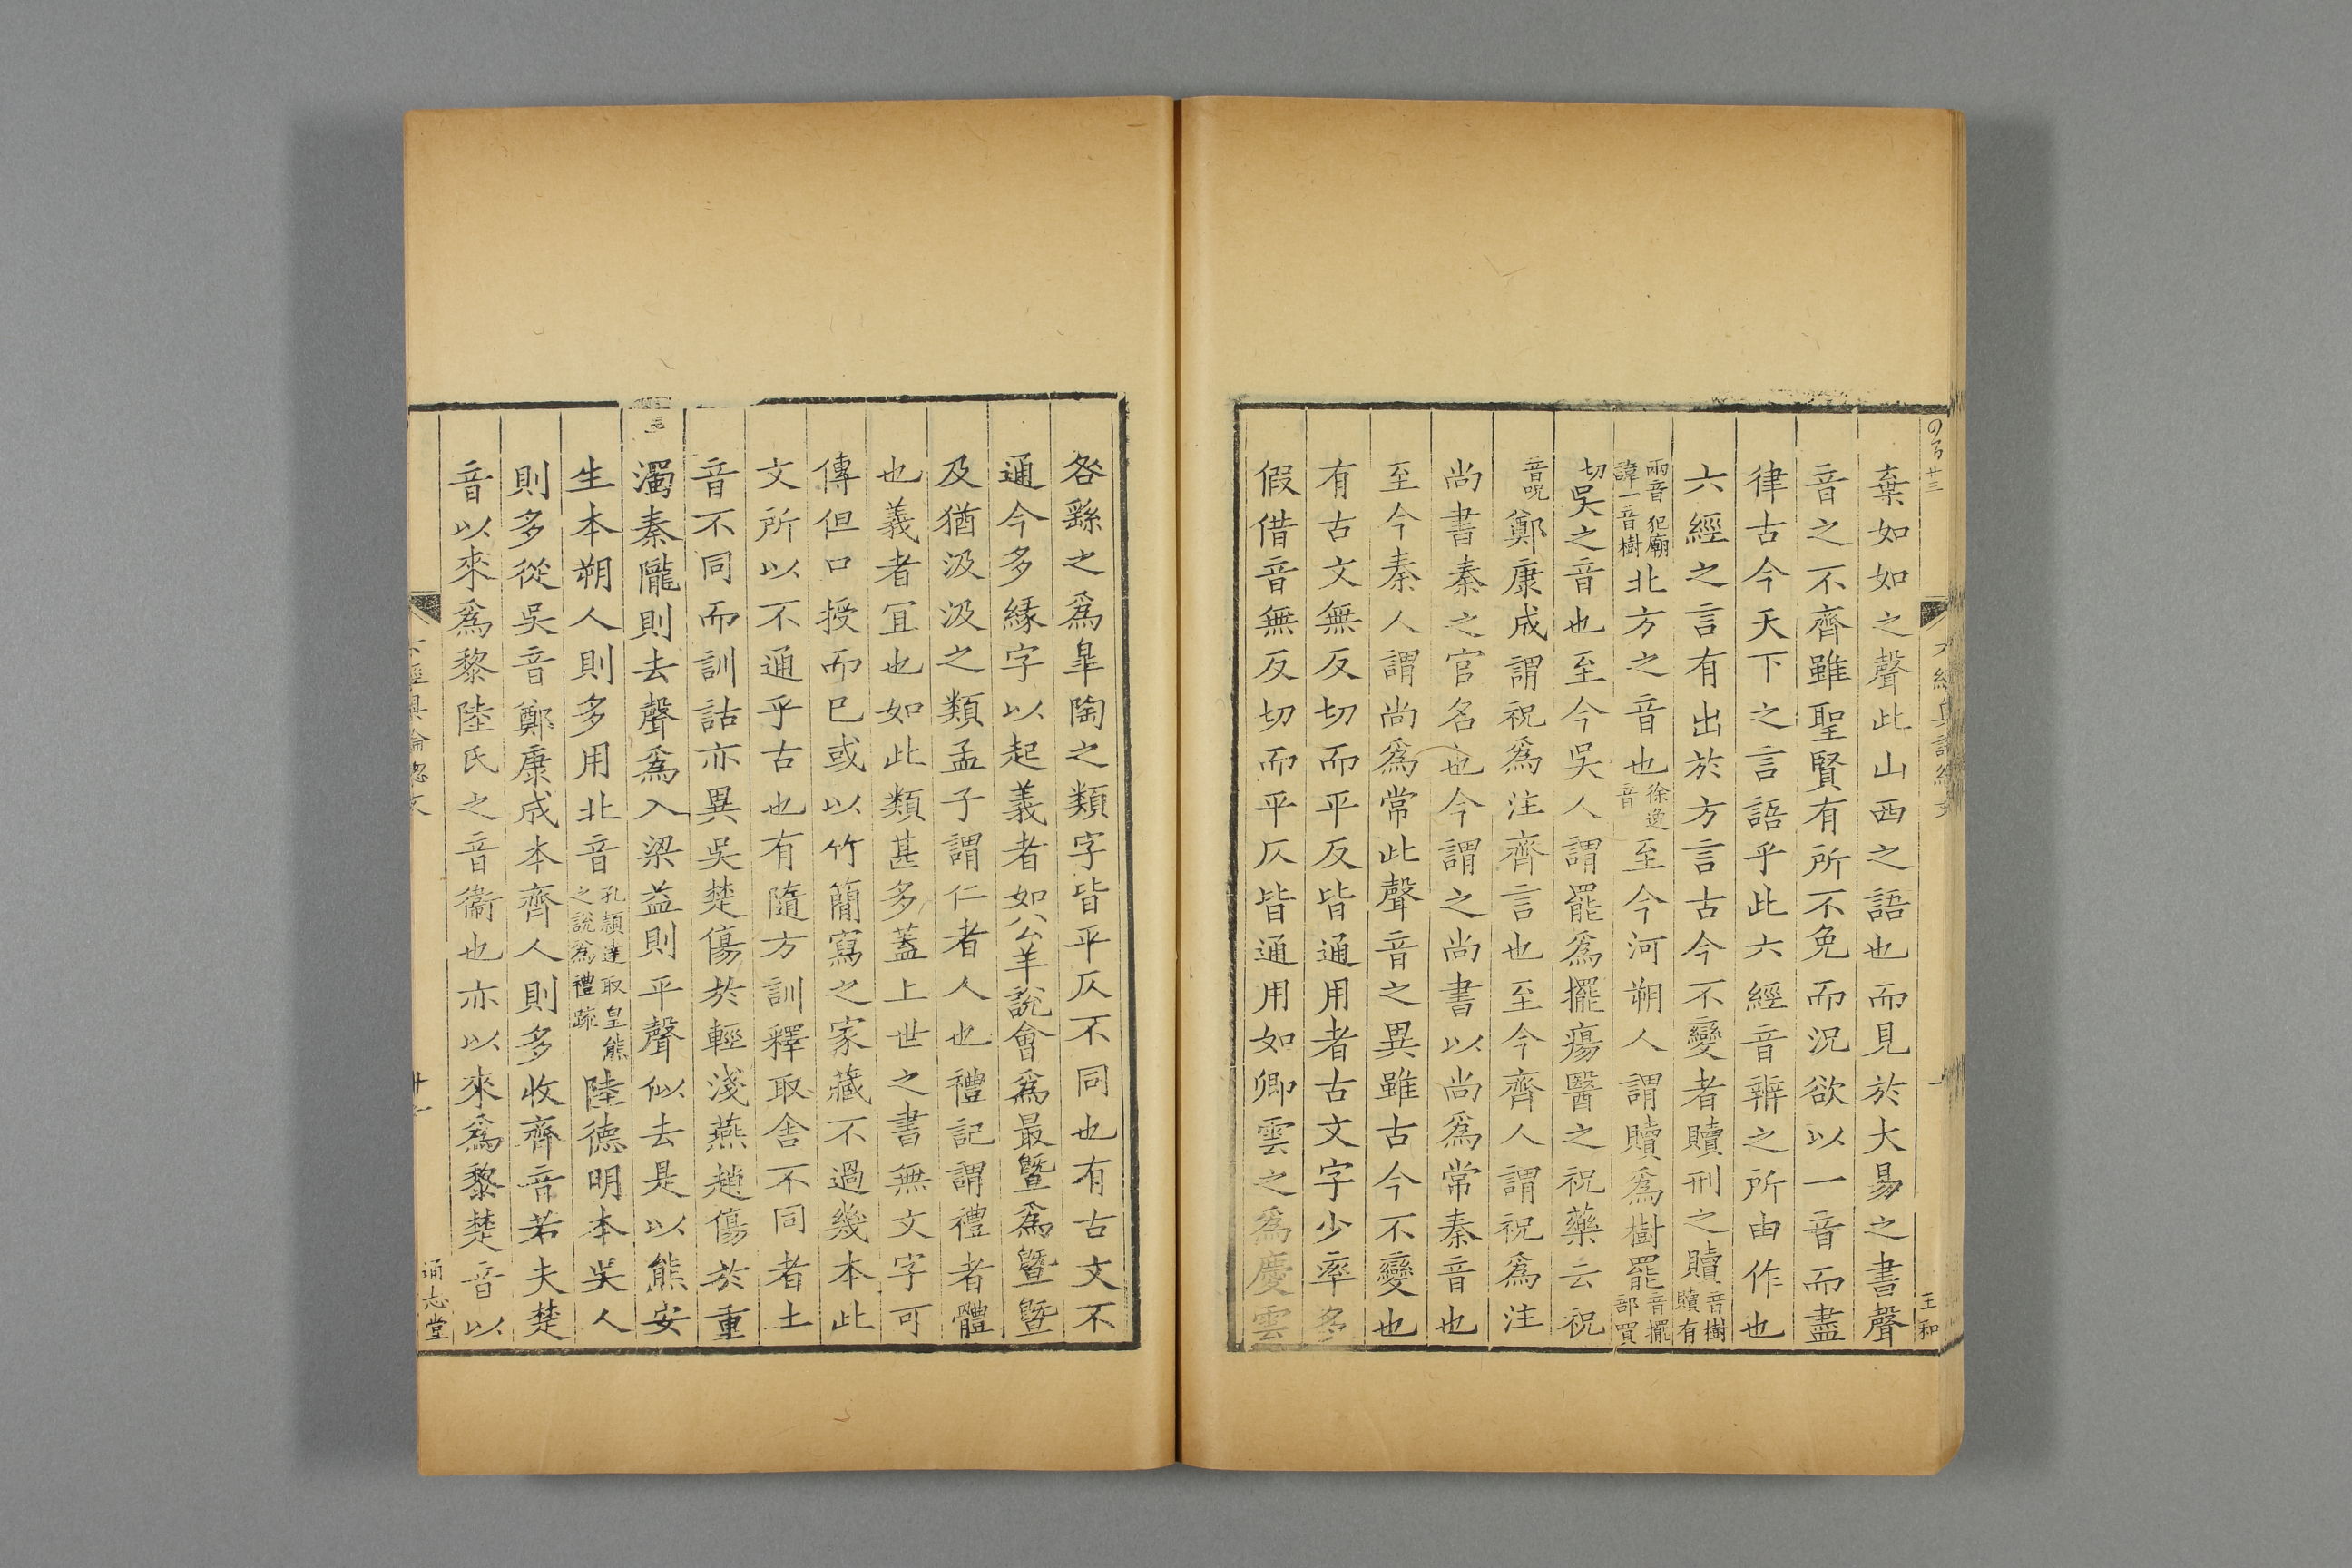 棄如如之聲此山西之語也而見於大易之書聲
音之不齊雖聖賢有所不免而況欲以一音而盡
律古今天下之言語乎此六經音辨之所由作也
六經之言有出於方言古今不變者贖刑之贖音樹贖有
兩音犯廟諱一音樹北方之音也徐邈音至今河朔人謂贖爲樹罷音擺部買
切吳之音也至今吳人謂罷爲擺瘍醫之祝藥云祝
音呪鄭康成謂祝爲注齊言也至今齊人謂祝爲注
尚書秦之官名也今謂之尚書以尚爲常秦音也
至今秦人謂尚爲常此聲音之異雖古今不變也
有古文無反切而平反皆通用者古文字少率多
假借音無反切而平仄皆通用如卿雲之爲慶雲
咎繇之爲皐陶之類字皆平仄不同也有古文不
通今多緣字以起義者如公羊說會爲最曁爲曁曁
及猶汲汲之類孟子謂仁者人也禮記謂禮者體
也義者宜也如此類甚多蓋上世之書無文字可
傳但口授而已或以竹簡寫之家藏不過幾本此
文所以不通乎古也有隨方訓釋取舍不同者土
音不同而訓詁亦異吳楚傷於輕淺燕趙傷於重
濁秦隴則去聲爲入梁益則平聲似去是以熊安
生本朔人則多用北音孔穎達取皇熊之說爲禮疏陸德明本吳人
則多從吳音鄭康成本齊人則多收齊音若夫楚
音以來爲黎陸氏之音衞也亦以來爲黎楚音以
通志堂